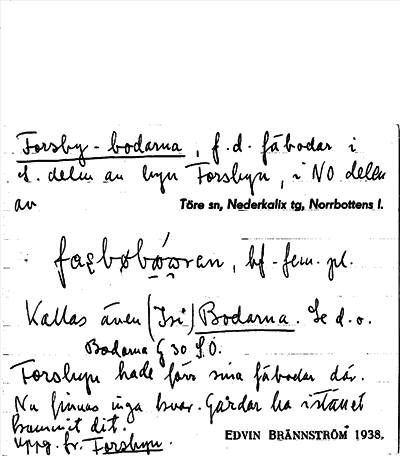 Forsby-bodarna, f.d. fäbodar i
s. delen av byn Forsbyn, i NO delen
av Töre sn, Nederkalix tg, Norrbottens l.
bf. fem. pl.
Kallas även (Isi) Bodarna. Se d.o.
Bodarna G 30 S.O.
Forsbyn hade förr sina fäbodar där.
Nu finnas inga kvar. Gårdar ha i stället
kommit dit.
Uppg. fr. Forsbyn.
EDVIN BRÄNNSTRÖM 1938.